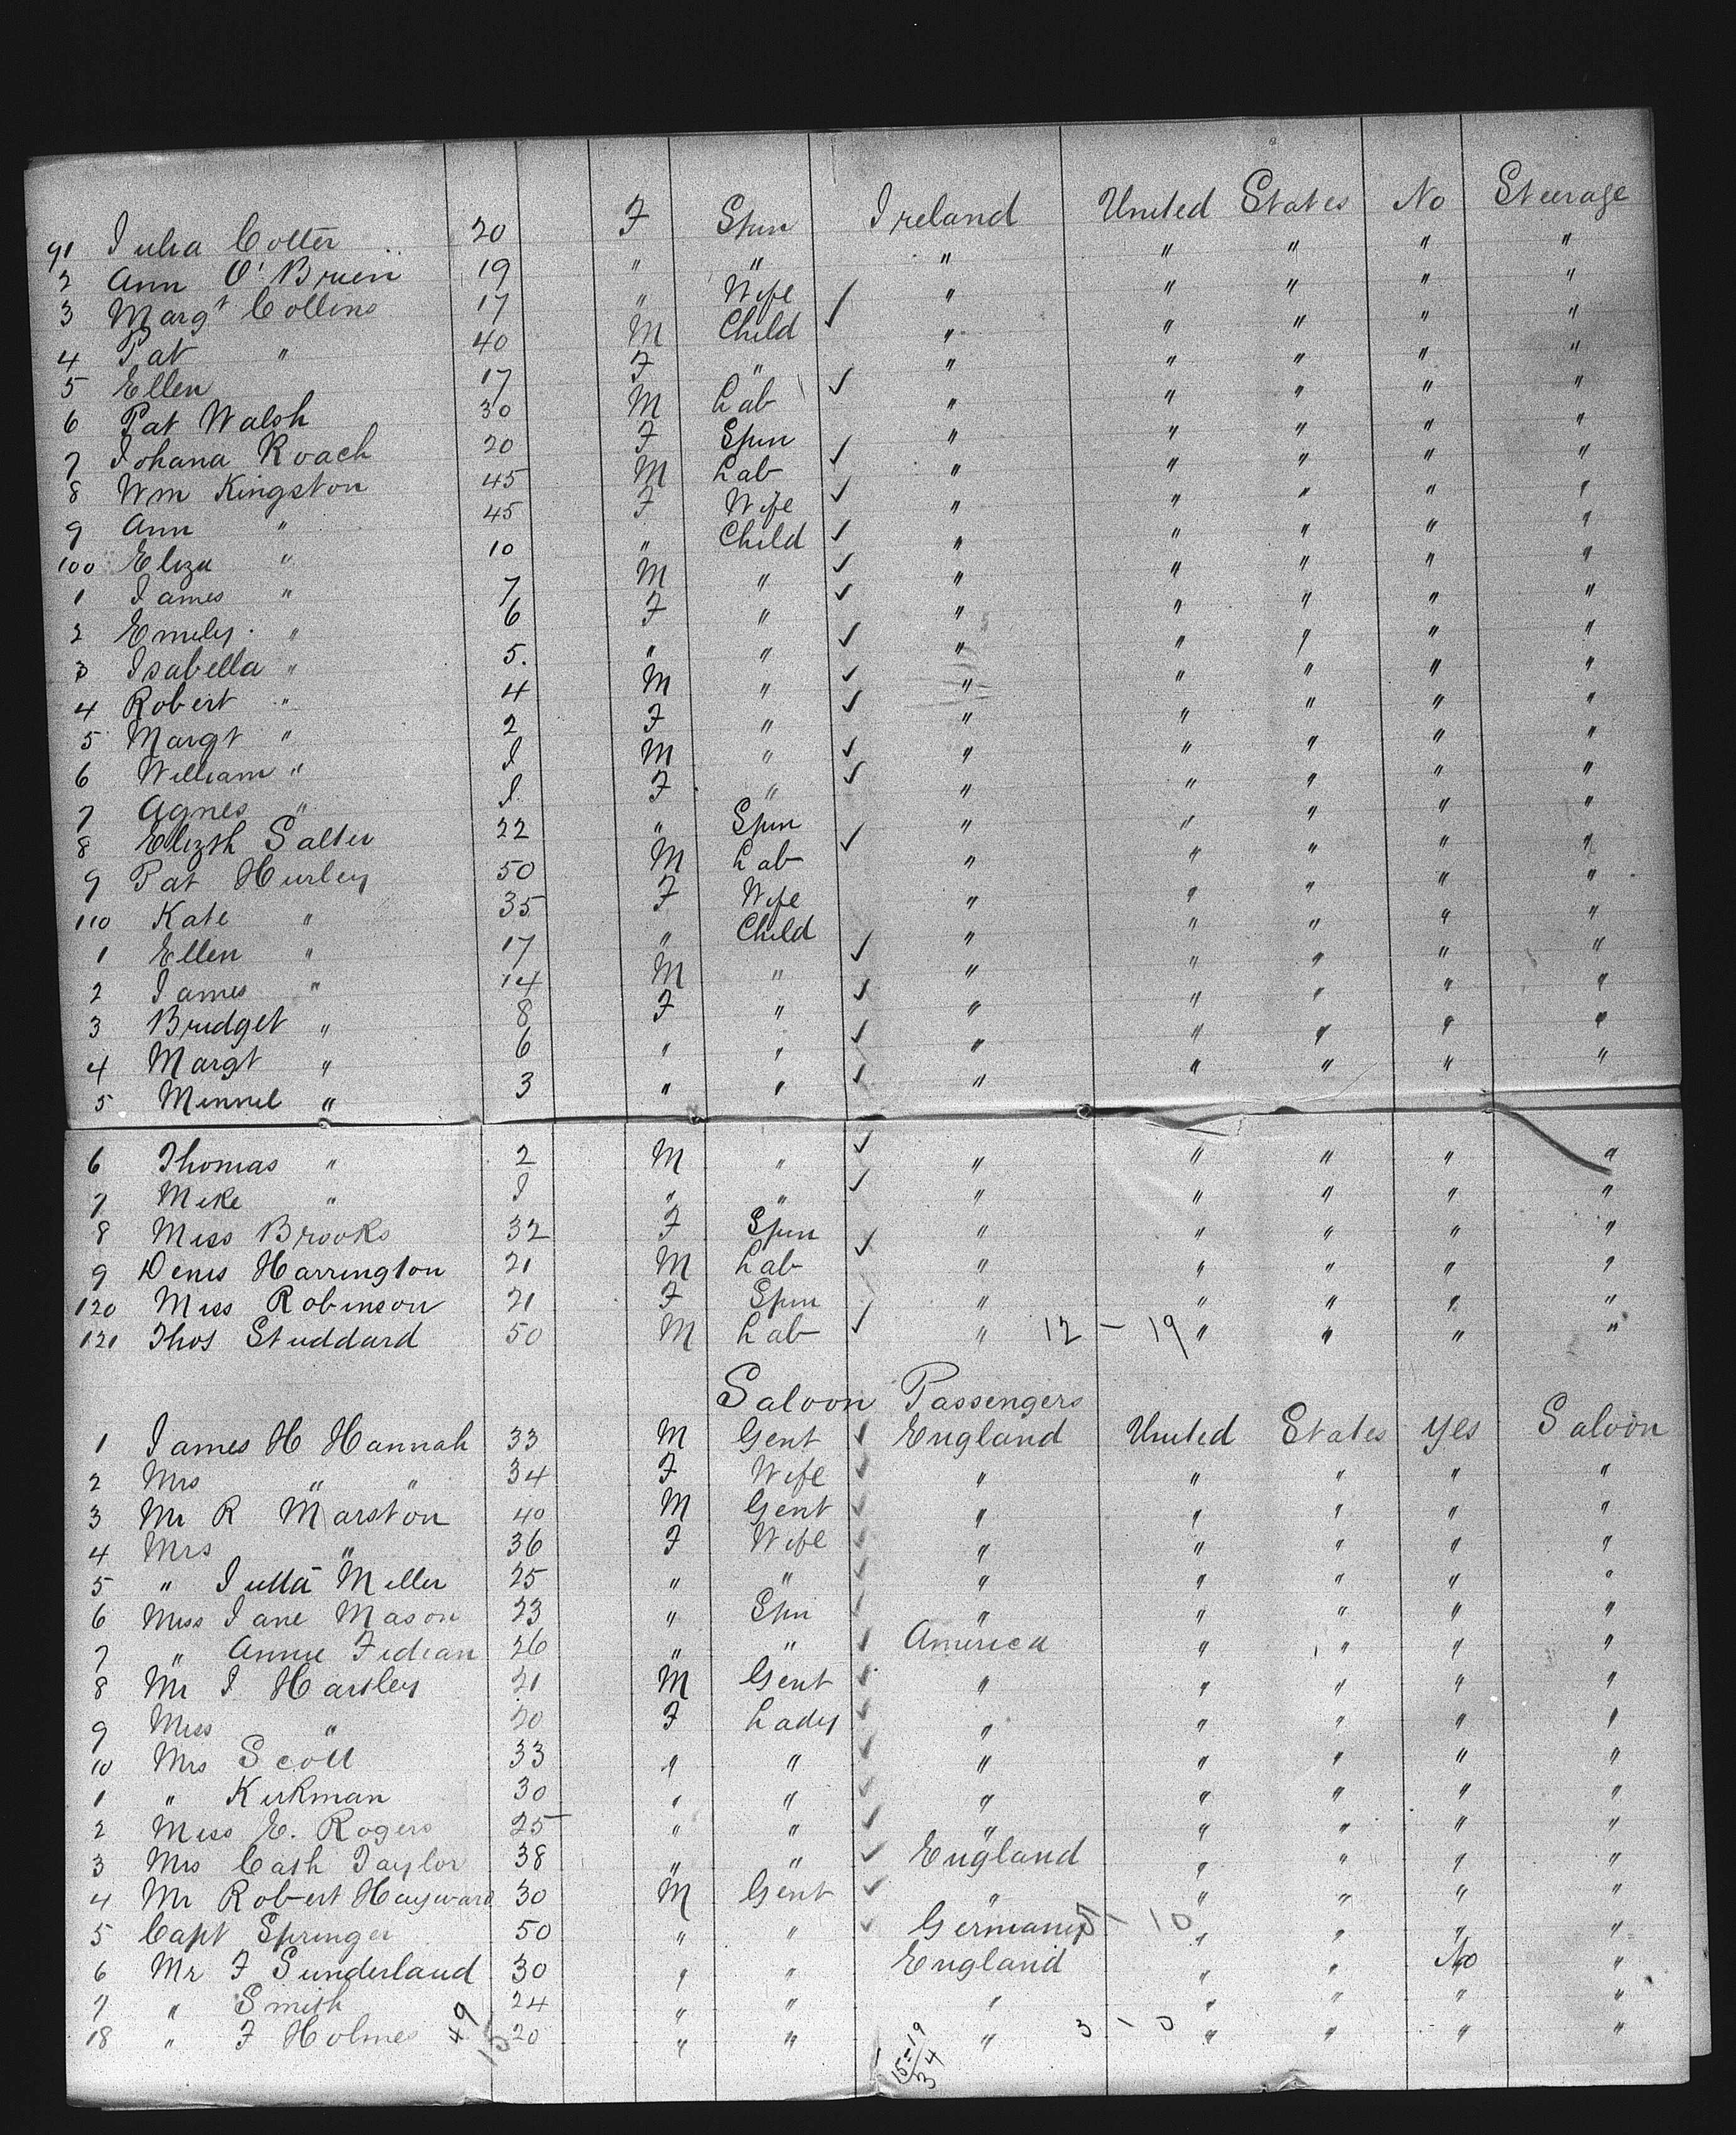 91 Julia Cotter 20 F Spin Ireland United States No Steerage
2 Ann O'Brien 19 " " " " " " "
3 Margt Collins 17 " Wife " " " " "
4 Pat " 40 M Child " " " " "
5 Ellen 17 F " " " " " "
6 Pat Walsh 30 M Lab " " " " "
7 Johana Roach 20 F Spin " " " " "
8 Wm Kingston 45 M Lab " " " " "
9 Ann " 45 F Wife " " " " "
100 Eliza " 10 " Child " " " " "
1 James " 7 M " " " " " "
2 Emily " 6 F " " " " " "
3 Isabella " 5 " " " " " " "
4 Robert " 4 M " " " " " "
5 Margt " 2 F " " " " " "
6 William " I M " " " " " "
7 Agnes " I F " " " " " "
8 Elizth Salter 22 " Spin " " " " "
9 Pat Hurley 50 M Lab " " " " "
110 Kate " 35 F Wife " " " " "
1 Ellen " 17 " Child " " " " "
2 James " 14 M " " " " " "
3 Bridget " 8 F " " " " " "
4 Margt " 6 " " " " " " "
5 Minnie " 3 " " " " " " "
6 Thomas " 2 M " " " " " "
7 Mike " I " " " " " " "
8 Miss Brooks 32 F Spin " " " " "
9 Denis Harrington 21 M Lab " " " " "
120 Miss Robinson 21 F Spin " " " " "
121 Thos Studdard 50 M Lab " 12 - 19 " " " "
Saloon Passengers
1 James H Hannah 33 M Gent England United States Yes Saloon
2 Mrs " " 34 F Wife " " " " "
3 Mr R Marston 40 M Gent " " " " "
4 Mrs " 36 F Wife " " " " "
5 " Julia Miller 25 " " " " " " "
6 Miss Jane Mason 23 " Spin " " " " "
7 " Annie Fidian 26 " " America " " " "
8 Mr J Hartley 21 M Gent " " " " "
9 Miss " 20 F Lady " " " " "
10 Mrs Scott 33 " " " " " " "
1 " Kirkman 30 " " " " " " "
2 Miss E. Rogers 25 " " " " " " "
3 Mrs Cash Taylor 38 " " England " " " "
4 Mr Robert Hayward 30 M Gent " " " " "
5 Capt Springer 50 " " Germany 5 - 10 " " " "
6 Mr F Sunderland 30 " " England " " No "
7 " Smith 24 " " " " " " "
18 " F Holmes 49 15 20 " " " 3 - 0 " " " "
15-19
34